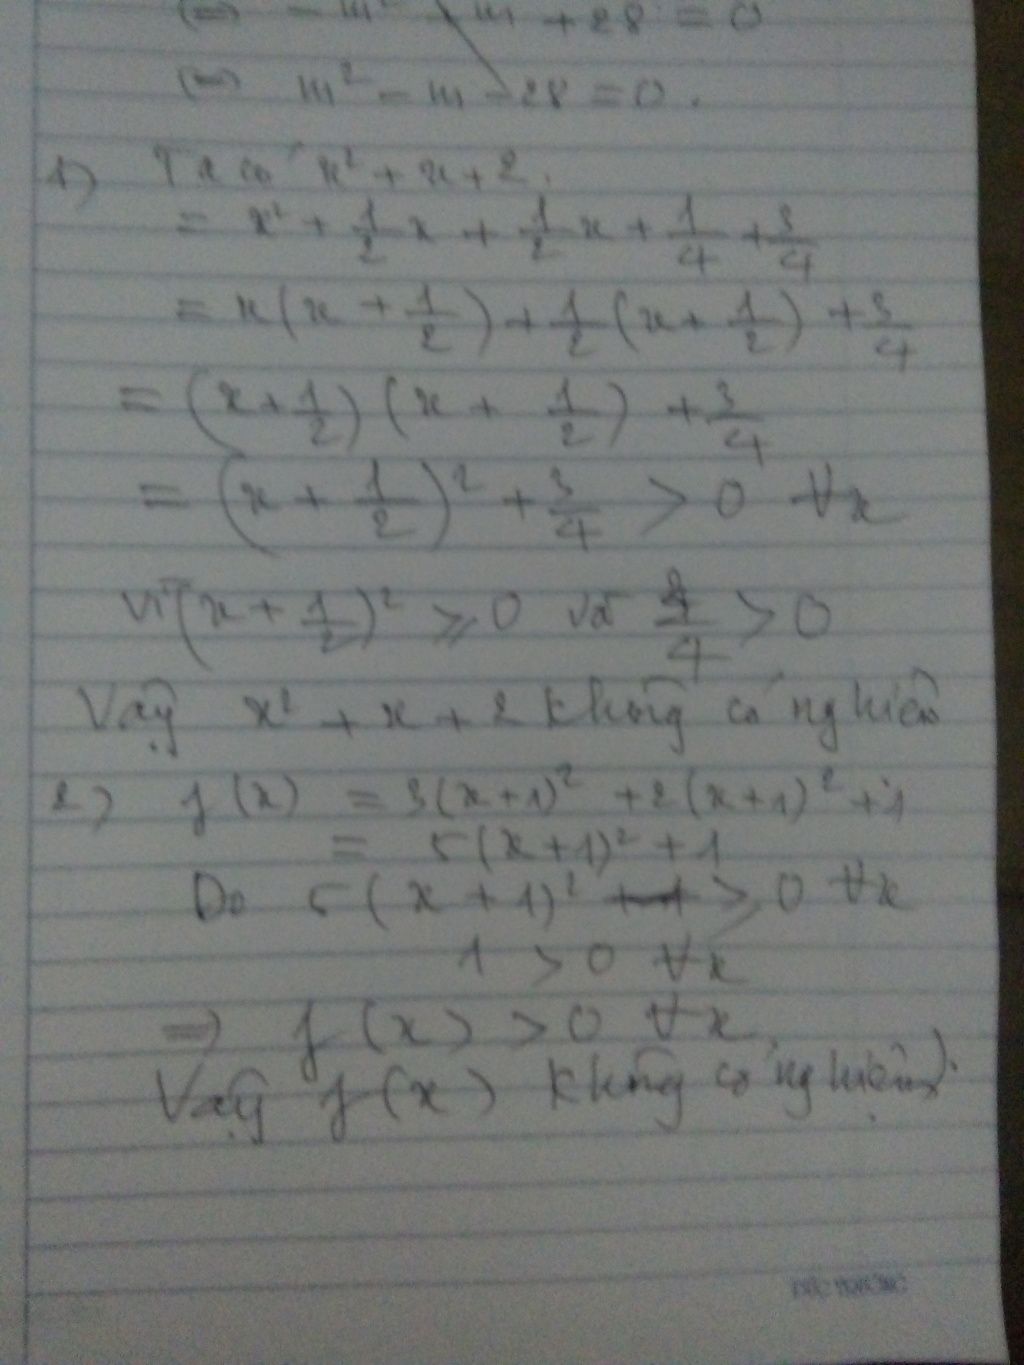 (=) - m² - m + 28 = 0
(=) m² - m - 28 = 0.
1) Ta có x² + x + 2.
= x² + 1/2 x + 1/2 x + 1/4 + 3/4
= x(x + 1/2) + 1/2 (x + 1/2) + 3/4
= (x + 1/2) (x + 1/2) + 3/4
= (x + 1/2)² + 3/4 > 0 ∀x
Vì (x + 1/2)² ⩾ 0 và 3/4 > 0
Vậy x² + x + 2 không có nghiệm
2) f(x) = 3(x+1)² + 2(x+1)² + 1
= 5(x+1)² + 1
Do 5(x+1)² ⩾ 0 ∀x
1 > 0 ∀x
=) f(x) > 0 ∀x
Vậy f(x) không có nghiệm.